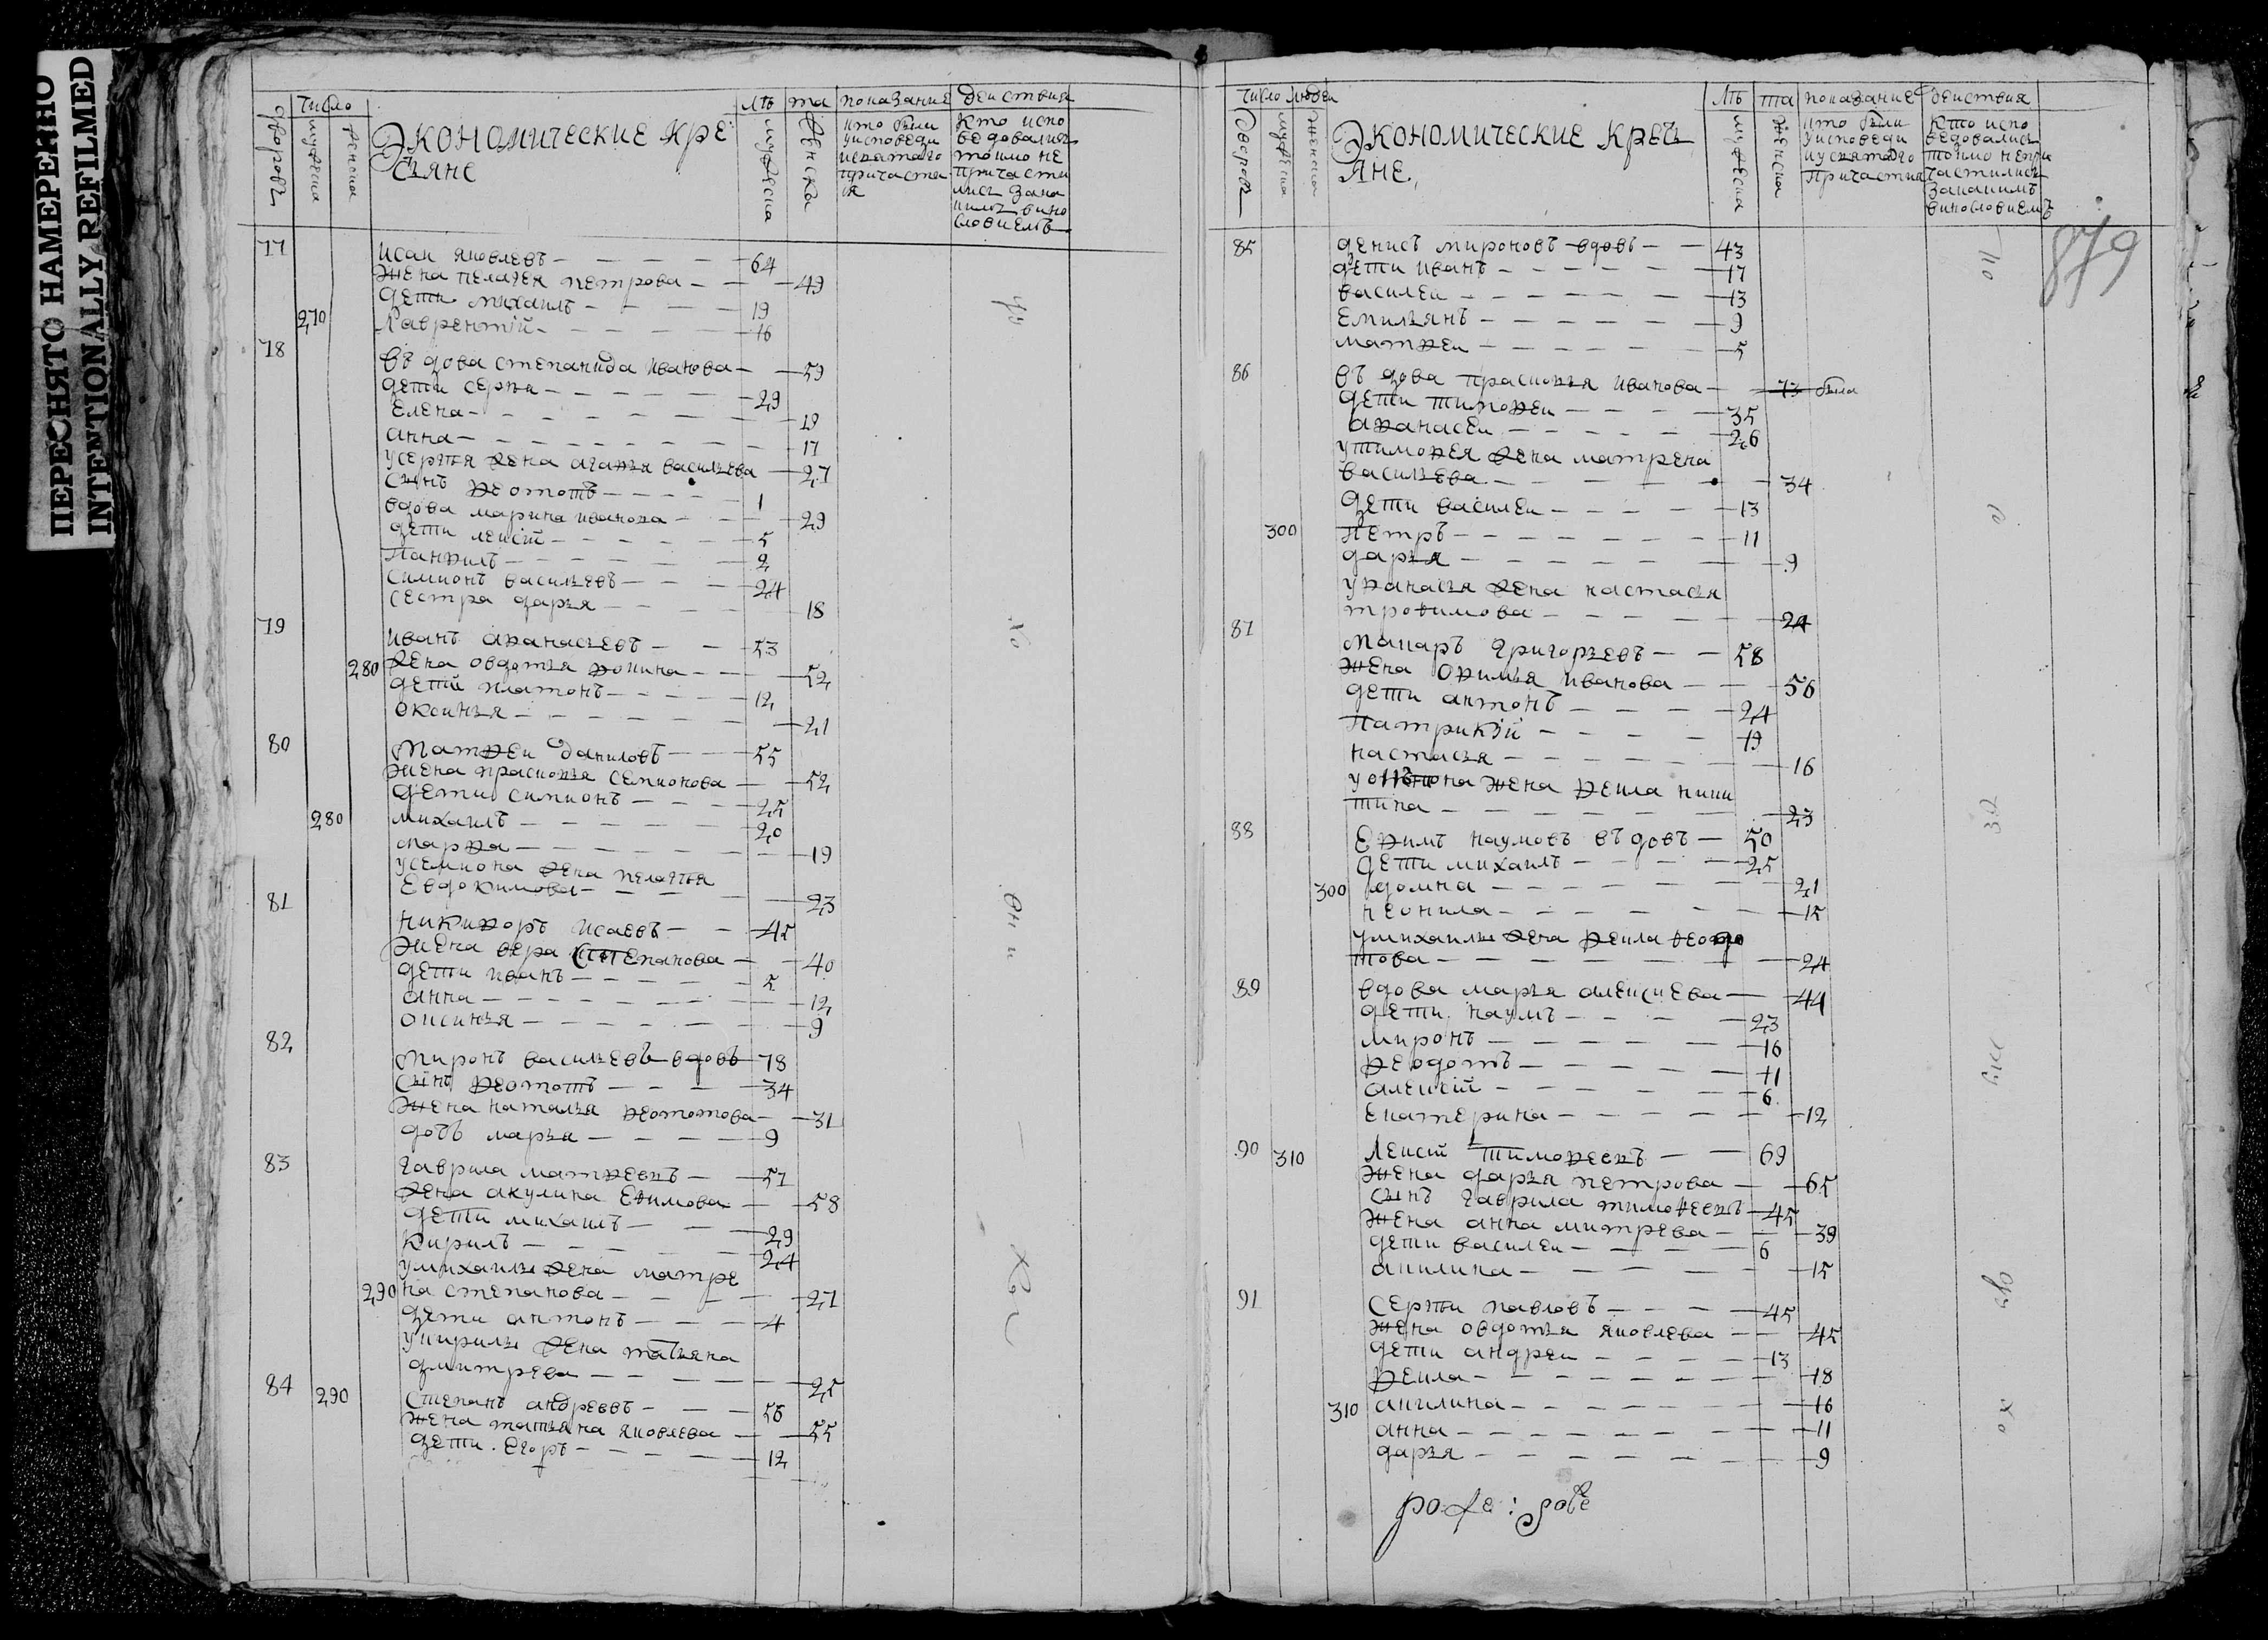 ПЕРЕСНЯТО НАМЕРЕННО
INTENTIONALLY REFILMED
число
дворовъ
мужеска
женска
Экономические кре
стьяне
лѣ та
мужеска
женска
показание
кто были
у исповеди
и святаго
причасти
я
действия
кто испо
ведовались
токмо не
причасти
лись за ка
кимъ вино
словиемъ
77
исаи яковлевъ 64
жена пелагея петрова 49
дети михаилъ 19
270 Лаврентій 16
78
въдова степанида иванова 59
дети сергеи 29
Елена 19
анна 17
у сергея жена агафья васильева 27
сынъ ѳеототъ 1
вдова марина иванова 29
дети леѯіи 5
Панѳилъ 2
симионъ васильевъ 24
сестра дарья 18
79
иванъ аѳанасьевъ 53
280 жена овдотья ѳокина 52
дети платонъ 12
оксинья 21
80
Матѳеи даниловъ 55
жена прасковья семионова 52
дети симионъ 25
280 михаилъ 20
марѳа 19
у семиона жена пелагея
Евдокимова 23
81
никиѳоръ исаевъ 45
жена вера степанова 40
дети иванъ 5
анна 12
оксинья 9
82
Миронъ васильевъ вдовъ 78
сынъ ѳеототъ 34
жена наталья ѳеототова 31
дочь марья 9
83
гаврила матѳеевъ 57
жена акулина Ефимова 58
дети михаилъ 29
Кирилъ 24
у михаилы жена матре
290 на степанова 27
дети антонъ 4
у кирилы жена татьяна
дмитрева 25
84
290 Степанъ андреевъ 56
жена татьяна яковлева 55
дети Егоръ 12
число людеи
дворовъ
мужеска
женска
Экономические кресть
яне
лѣ та
мужеска
женска
показание
кто были
у исповеди
и у святаго
причастия
действия
кто испо
ведовались
токмо непри
частились
за какимъ
винословиемъ
879
85
денисъ мироновъ вдовъ 43
дети иванъ 17
василеи 13
Емильянъ 9
матѳеи 5
86
въдова прасковья иванова 73 была
дети тимоѳеи 35
аѳанасеи 26
у тимоѳея жена матрена
васильева 34
дети василеи 13
300 Петръ 11
дарья 9
у ѳанасья жена настасья
трофимова 24
87
Макаръ григорьевъ 58
жена оѳимья иванова 56
дети антонъ 24
Патрикій 19
настасья 16
жена ѳекла ники
тина 23
88
Еѳимъ наумовъ въдовъ 50
дети михаилъ 25
300 домна 21
неонила 15
у михаилы жена ѳекла
това 24
89
вдова марья алексиева 44
дети наумъ 23
миронъ 16
ѳеодотъ 11
алексіи 6
Екатерина 12
90
310 Леѯіи тимоѳеевъ 69
жена дарья петрова 65
сынъ гаврила тимофеевъ 45
жена анна митрева 39
дети василеи 6
акилина 15
91
сергеи павловъ 45
жена овдотья яковлева 45
дети андреи 13
ѳекла 18
310 акилина 16
анна 11
дарья 9